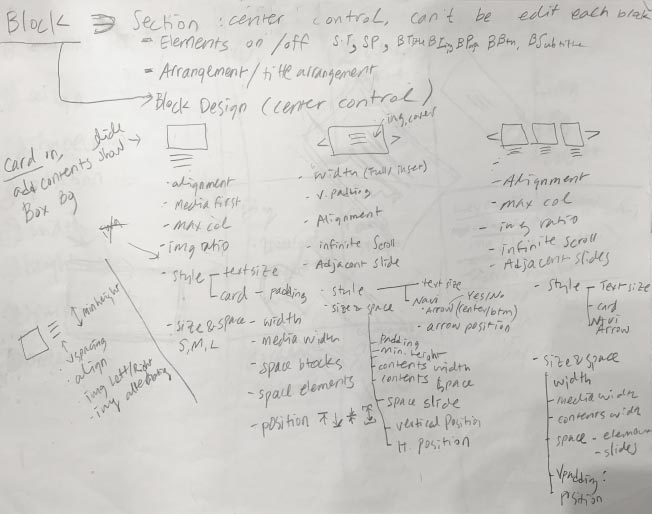 Block ⊃ Section : center control, can't be edit each block
= Elements on/off S.T, SP, BTitle BImg BPag BBtn, BSubtitle
= Arrangement/title arrangement
→ Block Design (center control)
card on, slide
add contents show →
Box Bg
- alignment
- Media First
- max col
- img ratio
- style - text size
- card - padding
- size & space - width
S, M, L
- media width
- space blocks
- space elements
- position
< > img covers
- width (Full, inset)
- v. padding
- Alignment
- infinite scroll
- Adjacent slide
- style - text size
Navi - Yes/No
Arrow (center/btm)
- arrow position
- size & space
- Padding
- min. height
- contents width
- contents space
- space slide
- vertical Position
- H. position
< >
- Alignment
- max col
- img ratio
- infinite scroll
- Adjacent slides
- style - Text size
- card
Navi
Arrow
- size & space
width
- media width
- contents width
- space - element
- slides
- Vpadding :
position
min height
- vspacing
- align
- img Left/Right
- img alternating